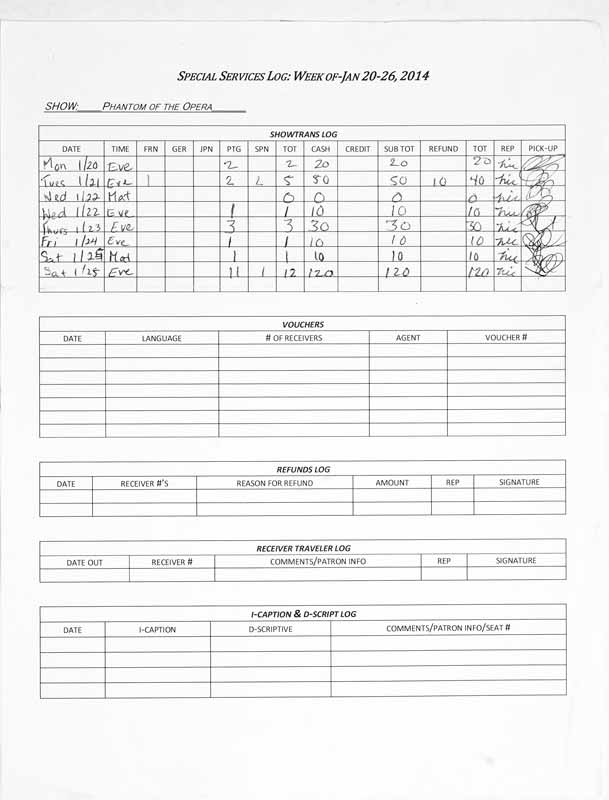 SPECIAL SERVICES LOG: WEEK OF-JAN 20-26, 2014
SHOW:____PHANTOM OF THE OPERA______
SHOWTRANS LOG
DATE TIME FRN GER JPN PTG SPN TOT CASH CREDIT SUB TOT REFUND TOT REP PICK-UP
Mon 1/20 Eve 2 2 20 20 20
Tues 1/21 Eve 1 2 2 5 50 50 10 40
Wed 1/22 Mat 0 0 0 0
Wed 1/22 Eve 1 1 10 10 10
Thurs 1/23 Eve 3 3 30 30 30
Fri 1/24 Eve 1 1 10 10 10
Sat 1/25 Mat 1 1 10 10 10
Sat 1/25 Eve 11 1 12 120 120 120
VOUCHERS
DATE LANGUAGE # OF RECEIVERS AGENT VOUCHER #
REFUNDS LOG
DATE RECEIVER #'S REASON FOR REFUND AMOUNT REP SIGNATURE
RECEIVER TRAVELER LOG
DATE OUT RECEIVER # COMMENTS/PATRON INFO REP SIGNATURE
I-CAPTION & D-SCRIPT LOG
DATE I-CAPTION D-SCRIPTIVE COMMENTS/PATRON INFO/SEAT #